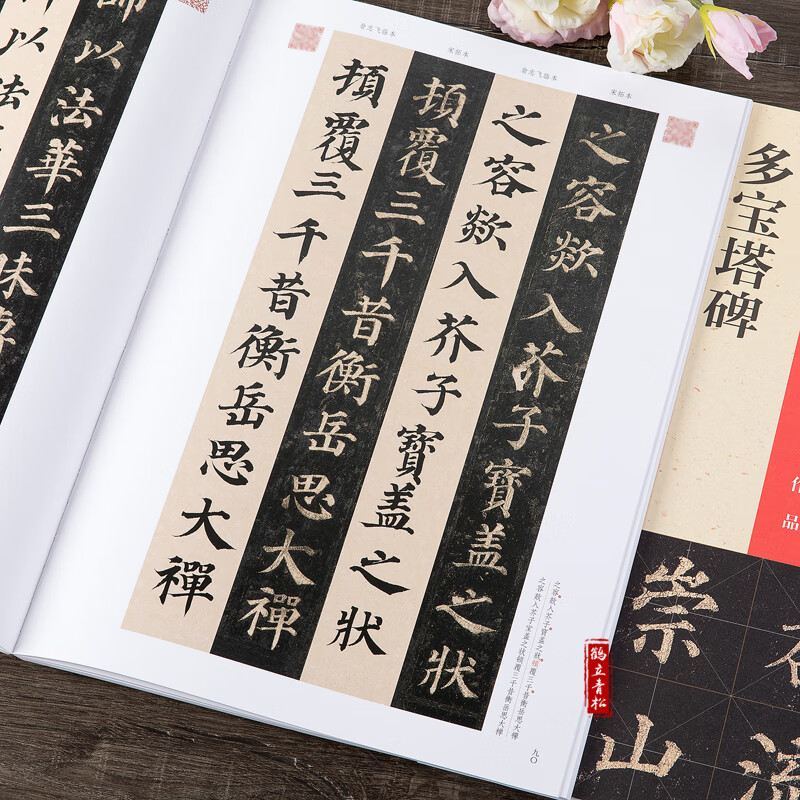 宋拓本
忠飞临本
宋拓本
忠飞临本
之容欻入芥子寶盖之狀
之容欻入芥子寶盖之狀
頓覆三千昔衡岳思大禪
頓覆三千昔衡岳思大禪
之容欻入芥子寶盖之狀頓覆三千昔衡岳思大禪
之容欻入芥子宝盖之状顿覆三千昔衡岳思大禅
九〇
師以法華三昧
以法
多宝塔碑
作品
崇山
流
鹤立青松